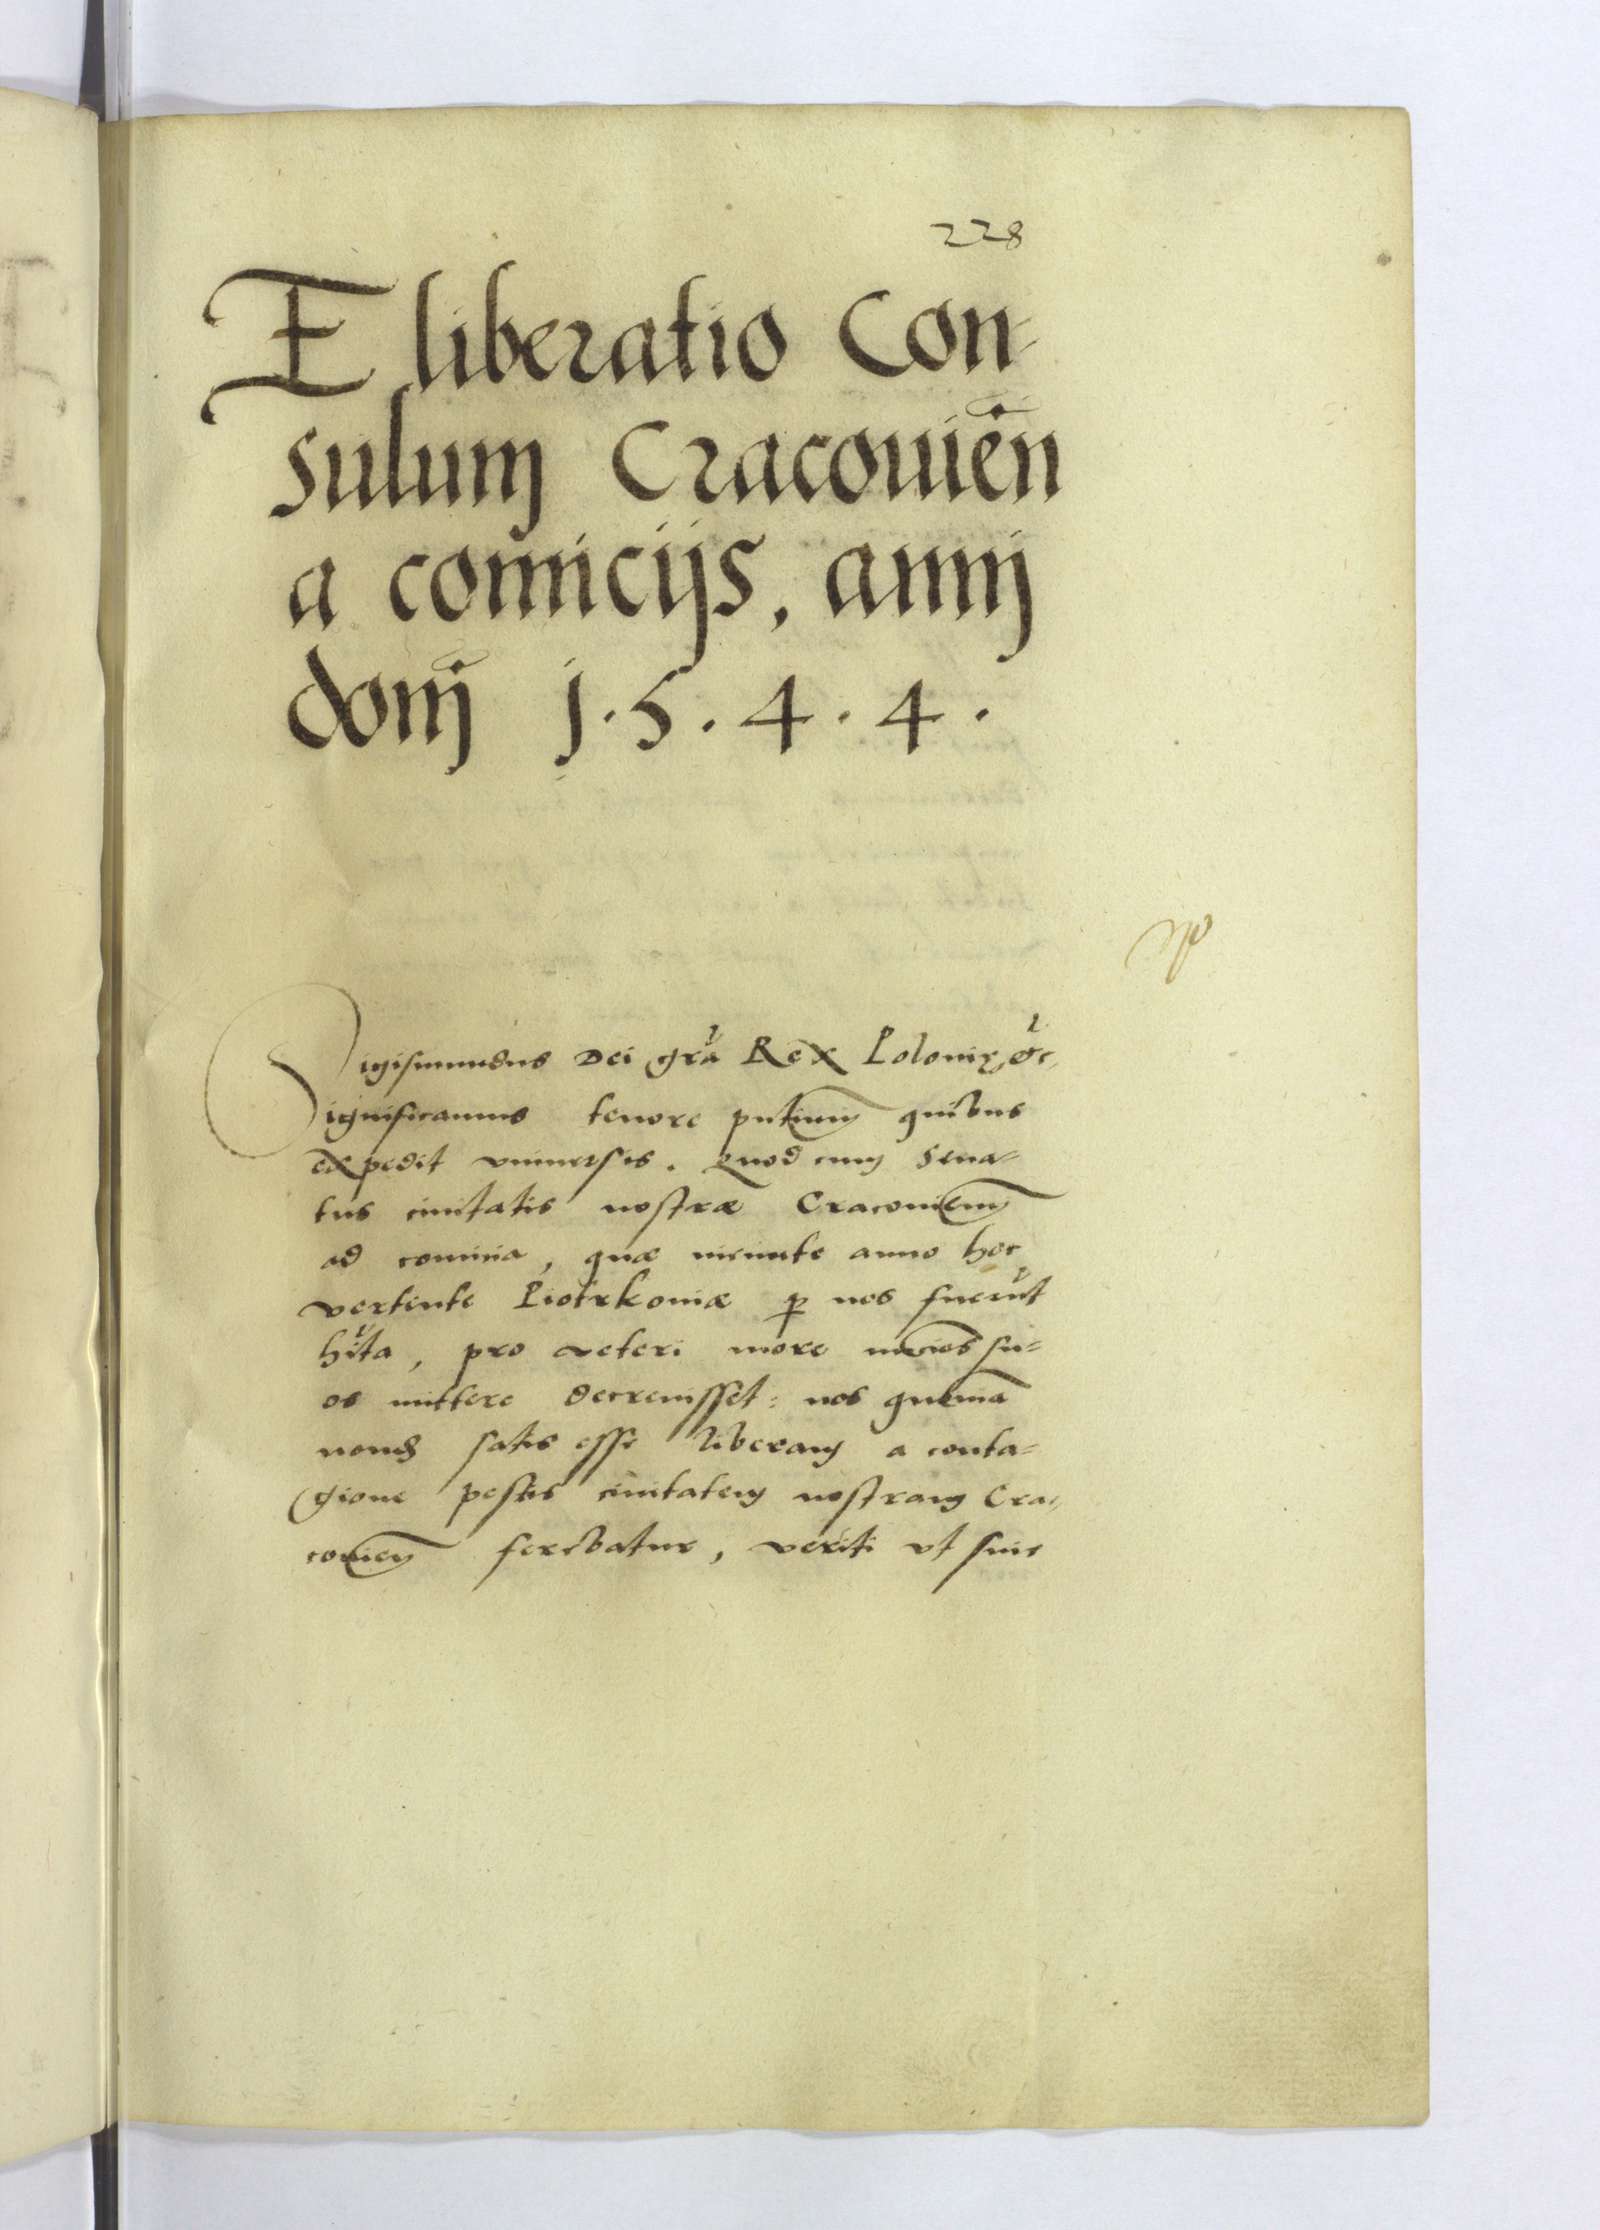 228
Eliberatio Con-
sulum Cracouien̄
a comicijs, annj
donj̄ 1.5.4.4.
Sigismundus Dei gra̅ Rex Polonię etc.
Significamus tenore pntium quibus
expedit vniuersis. Quod cum Sena-
tus ciuitatis nostræ Cracouien̄
ad comitia, quæ anno hoc
vertente Piotrkoniæ p nos fuerūt
hīta, pro veteri more nuncios su-
os mittere decreuisset: nos quoniā
nondū satis esse liberam a conta-
gione pestis ciuitatem nostram Cra-
couien̄ ferebatur, veriti vt suis